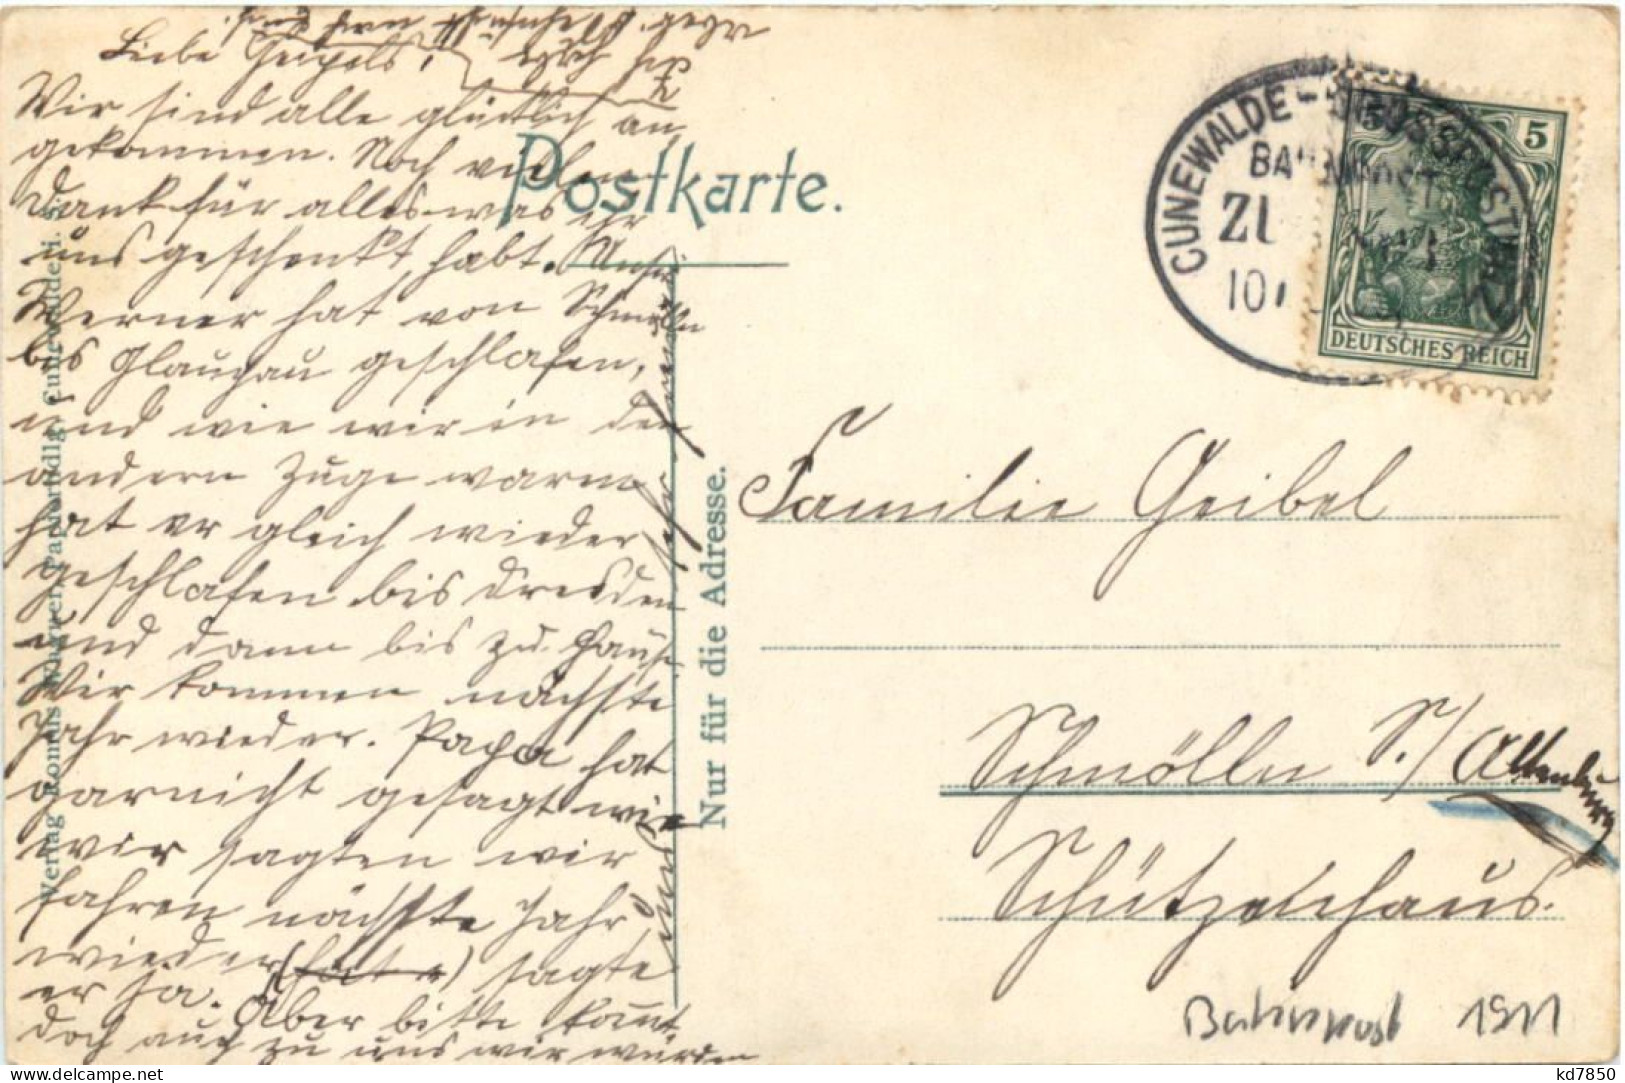 Liebe Geipels!
Wir sind alle glücklich an
gekommen. Noch vielen
Dank für alles was ihr
uns geschenkt habt. Unser
Werner hat von Schmölln
bis Glauchau geschlafen,
und wie wir in den
andern Zuge waren
hat er gleich wieder
geschlafen bis Dresden
und dann bis zu Hause
Wir kommen nächste
Jahr wieder. Papa hat
garnicht gesagt wie
wir sagten wir
fahren nächste Jahr
wieder (hat er) sagte
er ja. Aber bitte kommt
doch auch zu uns wir würden
Postkarte.
Nur für die Adresse.
Verlag Papierhdlg. Cunewalde i. S.
CUNEWALDE-GROSSPOSTWITZ
BAHNPOST
ZUG
5
DEUTSCHES REICH
Familie Geibel
Schmölln S./Altenburg
Schützenhaus.
Bahnpost 1911
kd7850